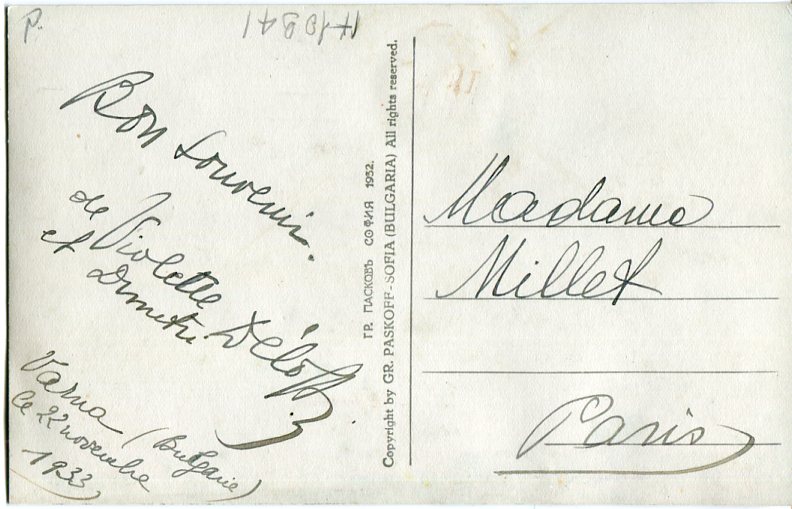 P.
Bon souvenir.
de Violette
et Dimitri Deloff
Varna (Bulgarie)
le 22 novembre
1933
ГР. ПАСКОВЪ СОФИЯ 1932.
Copyright by GR. PASKOFF-SOFIA (BULGARIA) All rights reserved.
Madame
Millet
Paris